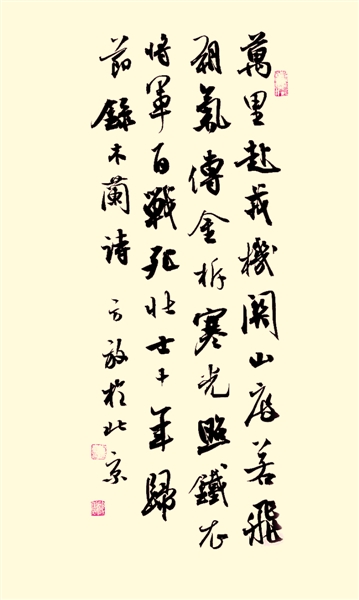 萬里赴戎機關山度若飛
朔氣傳金柝寒光照鐵衣
將軍百戰死壯士十年歸
節錄木蘭詩 方放於北京